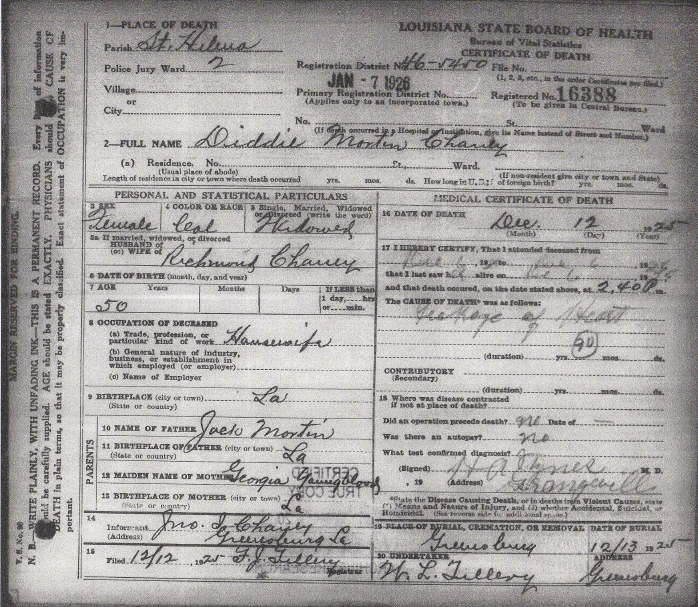 LOUISIANA STATE BOARD OF HEALTH
Bureau of Vital Statistics
CERTIFICATE OF DEATH
1—PLACE OF DEATH
Parish St. Helena
Police Jury Ward 2
Village
or
City
Registration District No. 46-5450 File No.
(1, 2, 3, etc., in the order Certificates are filed.)
JAN - 7 1926
Primary Registration District No.
(Applies only to an incorporated town.)
Registered No. 16388
(To be given in Central Bureau.)
No. St. Ward
(If death occurred in a Hospital or Institution, give its Name instead of Street and Number.)
2—FULL NAME Diddie Mortin Chaney
(a) Residence. No. St., Ward.
(Usual place of abode) (If non-resident give city or town and State)
Length of residence in city or town where death occurred yrs. mos. ds. How long in U.S. if of foreign birth? yrs. mos. ds.
PERSONAL AND STATISTICAL PARTICULARS
3 SEX 4 COLOR OR RACE 5 Single, Married, Widowed or Divorced (write the word)
Female Col Widowed
5a If married, widowed, or divorced
HUSBAND of
(or) WIFE of Richmond Chaney
6 DATE OF BIRTH (month, day, and year)
7 AGE Years Months Days If LESS than
1 day, ....hrs
or....min.
50
8 OCCUPATION OF DECEASED
(a) Trade, profession, or
particular kind of work Housewife
(b) General nature of industry,
business, or establishment in
which employed (or employer)
(c) Name of Employer
9 BIRTHPLACE (city or town) La
(State or country)
PARENTS
10 NAME OF FATHER Jack Mortin
11 BIRTHPLACE OF FATHER (city or town) La
(State or country)
12 MAIDEN NAME OF MOTHER Georgia Youngblood
13 BIRTHPLACE OF MOTHER (city or town) La
(State or country)
14
Informant Jno. I. Chaney
(Address) Greensburg La
15
Filed 12/12, 1925 F. J. Tillery
Registrar
MEDICAL CERTIFICATE OF DEATH
16 DATE OF DEATH Dec. 12 1925
(Month) (Day) (Year)
17 I HEREBY CERTIFY, That I attended deceased from
that I last saw alive on
and that death occurred, on the date stated above, at 2,40 P m.
The CAUSE OF DEATH was as follows:
Leakage of Heart
90
(duration) yrs. mos. ds.
CONTRIBUTORY
(Secondary)
(duration) yrs. mos. ds.
18 Where was disease contracted
if not at place of death?
Did an operation precede death? no Date of —
Was there an autopsy? no
What test confirmed diagnosis?
(Signed) M. D.
, 19 (Address) Grangeville
*State the Disease Causing Death, or in deaths from Violent Causes, state
(1) Means and Nature of Injury, and (2) whether Accidental, Suicidal, or
Homicidal. (See reverse side for additional space.)
19 PLACE OF BURIAL, CREMATION, OR REMOVAL DATE OF BURIAL
Greensburg 12/13 1925
20 UNDERTAKER ADDRESS
W. L. Tillery Greensburg
CERTIFIED
TRUE COPY
MARGIN RESERVED FOR BINDING.
V. S. No. 90
N. B.—WRITE PLAINLY, WITH UNFADING INK—THIS IS A PERMANENT RECORD. Every item of information
should be carefully supplied. AGE should be stated EXACTLY. PHYSICIANS should state CAUSE OF
DEATH in plain terms, so that it may be properly classified. Exact statement of OCCUPATION is very im-
portant.